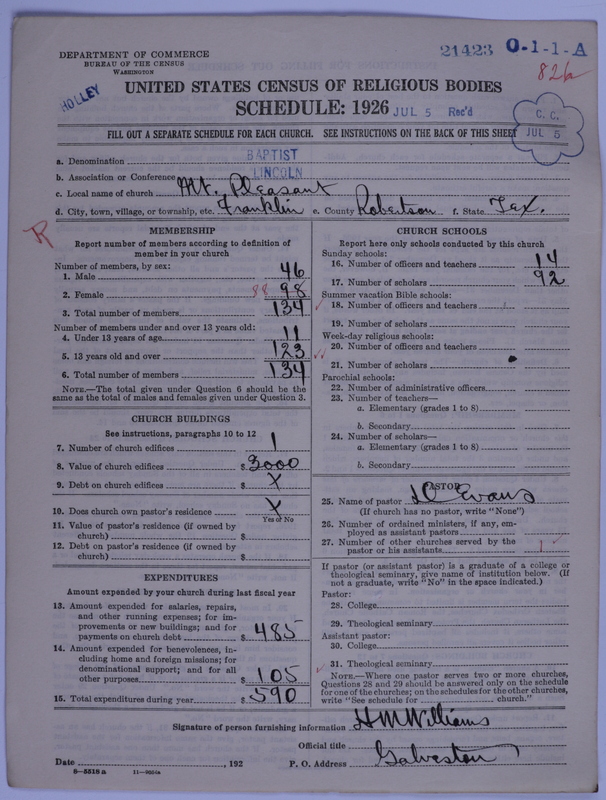 21423 O-1-1-A
82b
DEPARTMENT OF COMMERCE
BUREAU OF THE CENSUS
WASHINGTON
HOLLEY
UNITED STATES CENSUS OF RELIGIOUS BODIES
SCHEDULE: 1926 JUL 5 Rec'd
C. C.
JUL 5
FILL OUT A SEPARATE SCHEDULE FOR EACH CHURCH. SEE INSTRUCTIONS ON THE BACK OF THIS SHEET
a. Denomination BAPTIST
b. Association or Conference LINCOLN
c. Local name of church Mt. Pleasant
d. City, town, village, or township, etc. Franklin e. County Robertson f. State Tex.
R
MEMBERSHIP
Report number of members according to definition of
member in your church
Number of members, by sex:
1. Male 46
2. Female 88 98
3. Total number of members 134
Number of members under and over 13 years old:
4. Under 13 years of age 11
5. 13 years old and over 123
6. Total number of members 134
NOTE.—The total given under Question 6 should be the
same as the total of males and females given under Question 3.
CHURCH BUILDINGS
See instructions, paragraphs 10 to 12
7. Number of church edifices 1
8. Value of church edifices $3000
9. Debt on church edifices $ X
10. Does church own pastor's residence X
Yes or No
11. Value of pastor's residence (if owned by
church) $
12. Debt on pastor's residence (if owned by
church) $
EXPENDITURES
Amount expended by your church during last fiscal year
13. Amount expended for salaries, repairs,
and other running expenses; for im-
provements or new buildings; and for
payments on church debt $485
14. Amount expended for benevolences, in-
cluding home and foreign missions; for
denominational support; and for all
other purposes $105
15. Total expenditures during year $590
CHURCH SCHOOLS
Report here only schools conducted by this church
Sunday schools:
16. Number of officers and teachers 14
17. Number of scholars 92
Summer vacation Bible schools:
18. Number of officers and teachers
19. Number of scholars
Week-day religious schools:
20. Number of officers and teachers
21. Number of scholars
Parochial schools:
22. Number of administrative officers
23. Number of teachers—
a. Elementary (grades 1 to 8)
b. Secondary
24. Number of scholars—
a. Elementary (grades 1 to 8)
b. Secondary
PASTOR
25. Name of pastor Evans
(If church has no pastor, write "None")
26. Number of ordained ministers, if any, em-
ployed as assistant pastors
27. Number of other churches served by the
pastor or his assistants 1
If pastor (or assistant pastor) is a graduate of a college or
theological seminary, give name of institution below. (If
not a graduate, write "No" in the space indicated.)
Pastor:
28. College
29. Theological seminary
Assistant pastor:
30. College
31. Theological seminary
NOTE.—Where one pastor serves two or more churches,
Questions 28 and 29 should be answered only on the schedule
for one of the churches; on the schedules for the other churches,
write "See schedule for church."
Signature of person furnishing information HMWilliams
Official title
Date , 192 P. O. Address Galveston
8-5518 a